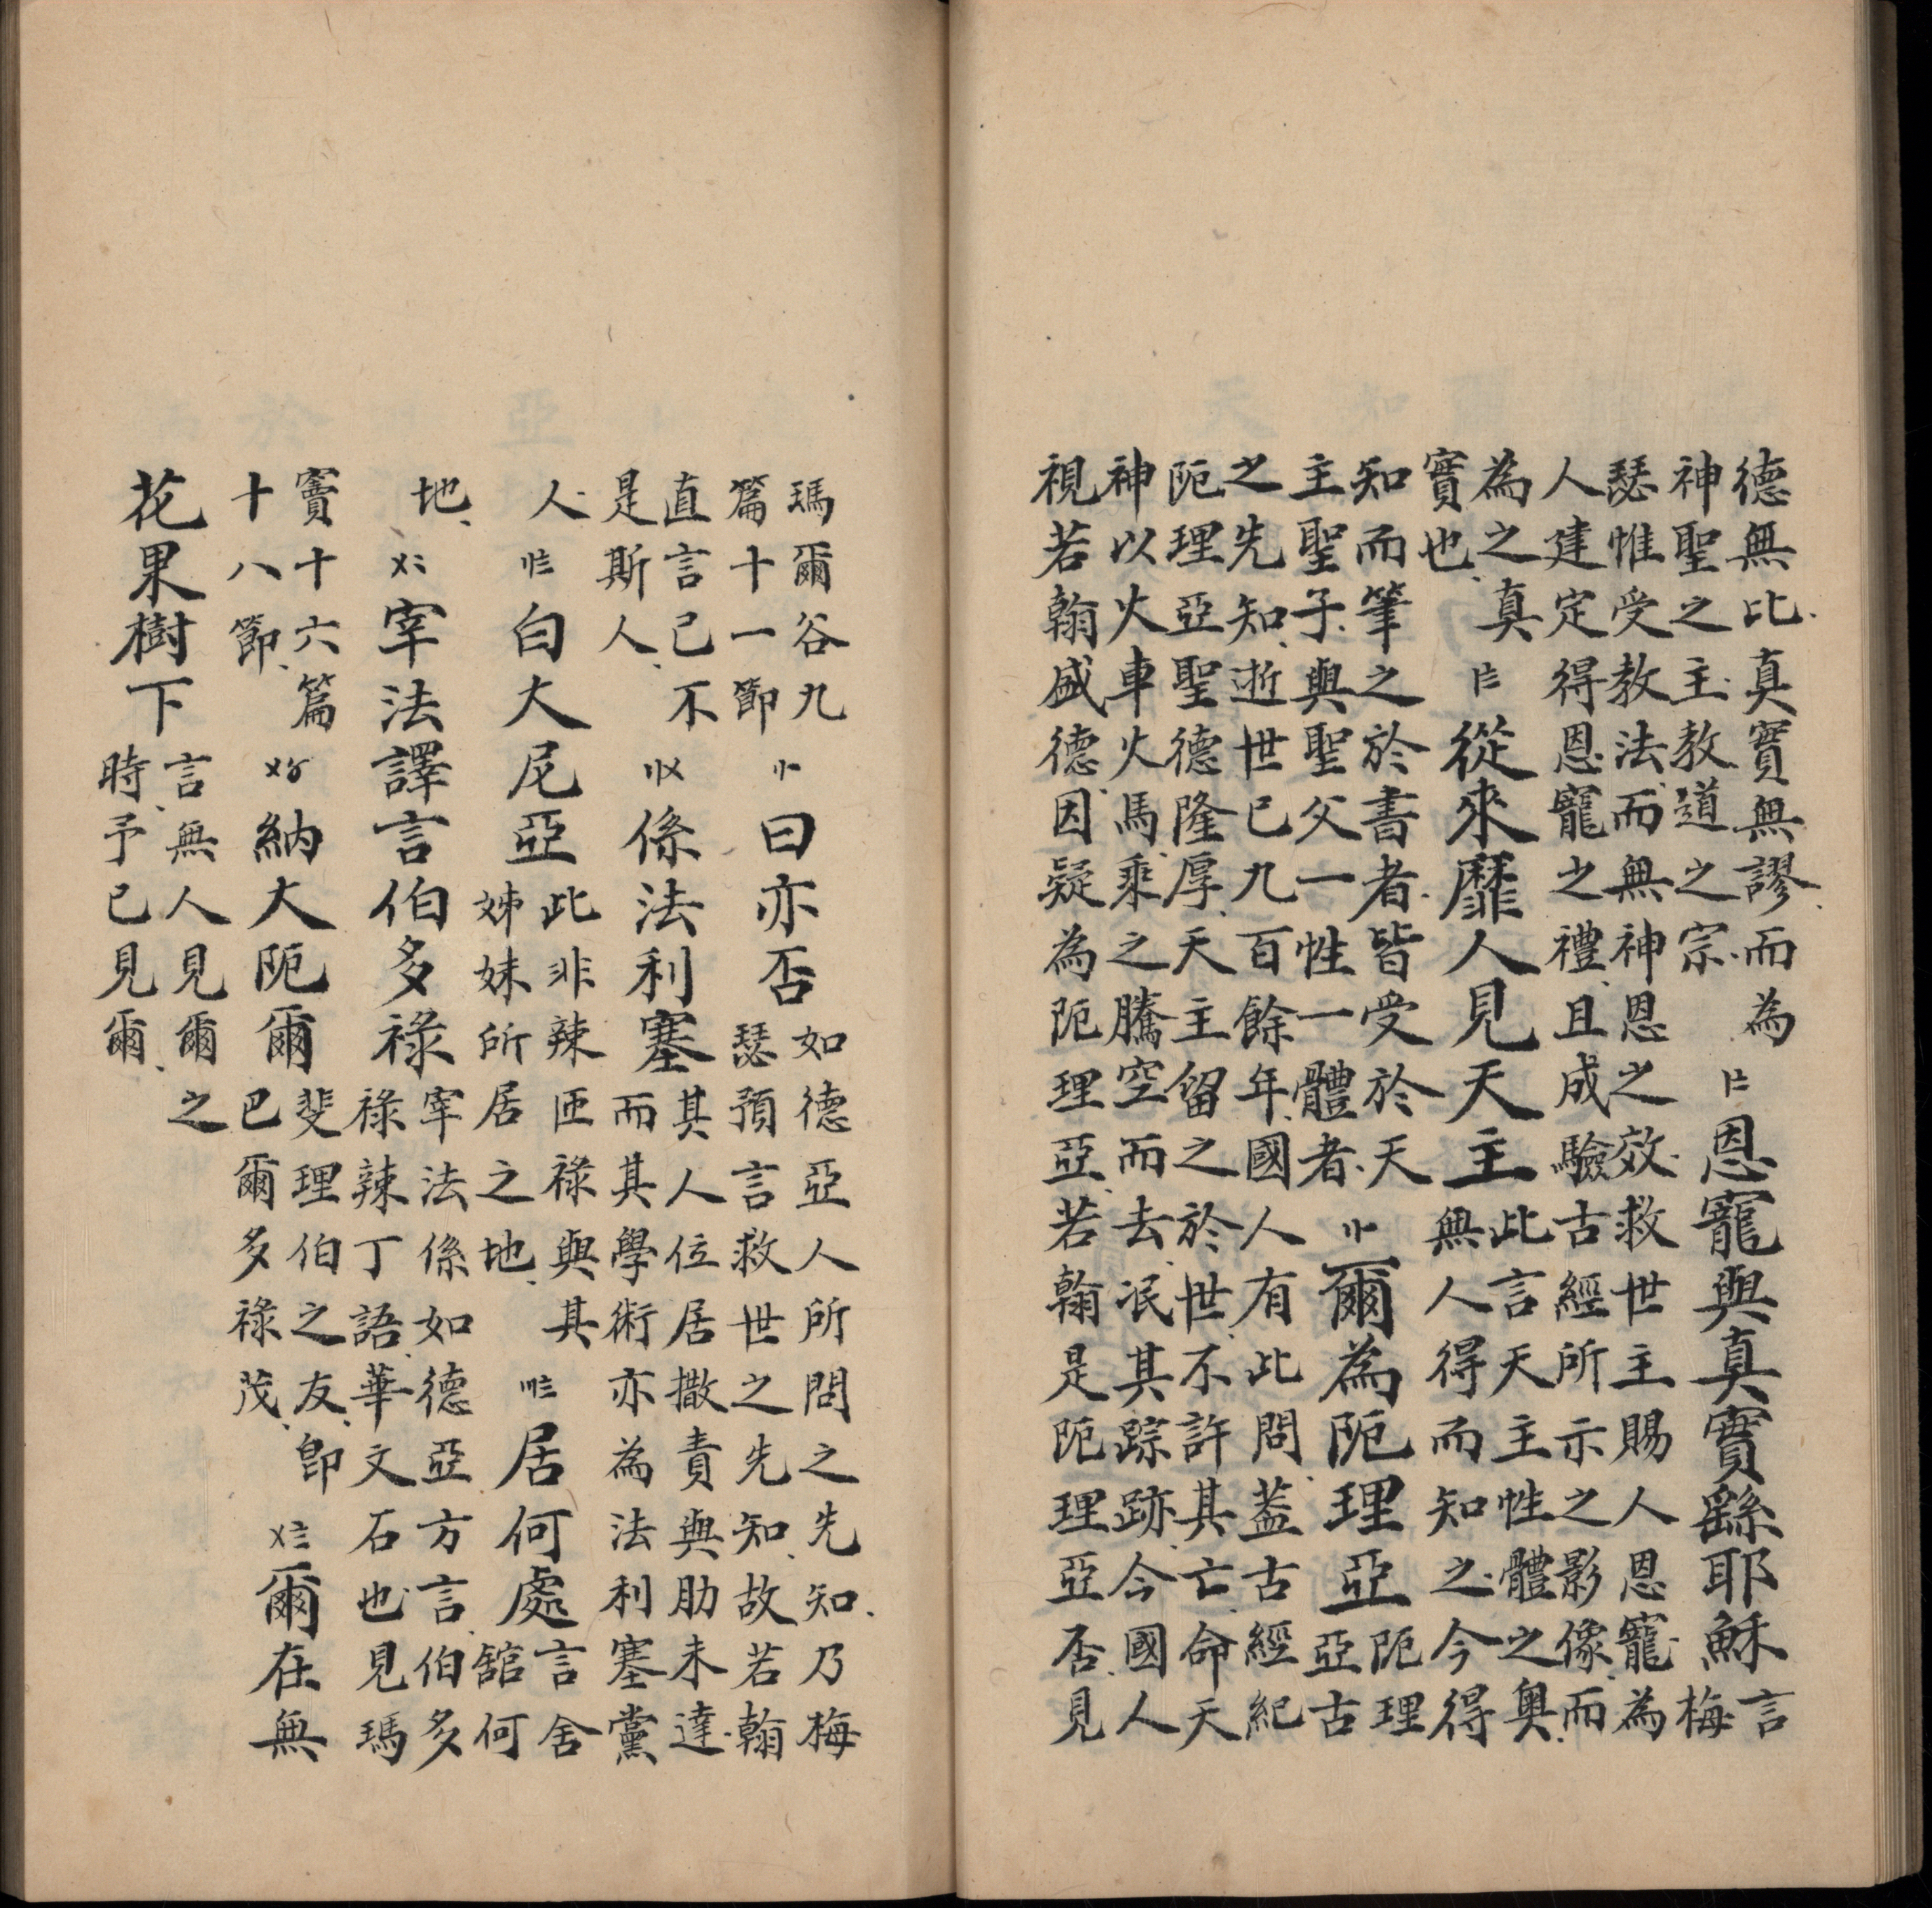 德無比真實無謬而為
神聖之主教道之宗
〡〧
恩寵與真實繇耶穌
言
梅
瑟惟受教法而無神恩之效救世主賜人恩寵為
人建定得恩寵之禮且成驗古經所示之影像而
為之真
實也
〡〨
從來靡人見天主
此言天主性體之奧
無人得而知之今得
知而筆之於書者皆受於天
主聖子與聖父一性一體者
〢一
爾為阨理亞
阨理
亞古
之先知逝世已九百餘年國人有此問蓋古經紀
阨理亞聖德隆厚天主留之於世不許其亡命天
神以火車火馬乘之騰空而去泯其踪跡今國人
視若翰盛德因疑為阨理亞若翰是阨理亞否見
瑪爾谷九
篇十一節
〢一
曰亦否
如德亞人所問之先知乃梅
瑟預言救世之先知故若翰
直言已不
是斯人
〢〤
係法利塞
其人位居撒責與肋未達
而其學術亦為法利塞黨
人
〢〨
白大尼亞
此非辣匝祿與其
姊妹所居之地
〣〨
居何處
言舍
舘何
地
〤二
宰法譯言伯多祿
宰法係如德亞方言伯多
祿辣丁語華文石也見瑪
竇十六篇
十八節
〤〥
納大阨爾
斐理伯之友即
巴爾多祿茂
〤〨
爾在無
花果樹下
言無人見爾之
時予已見爾